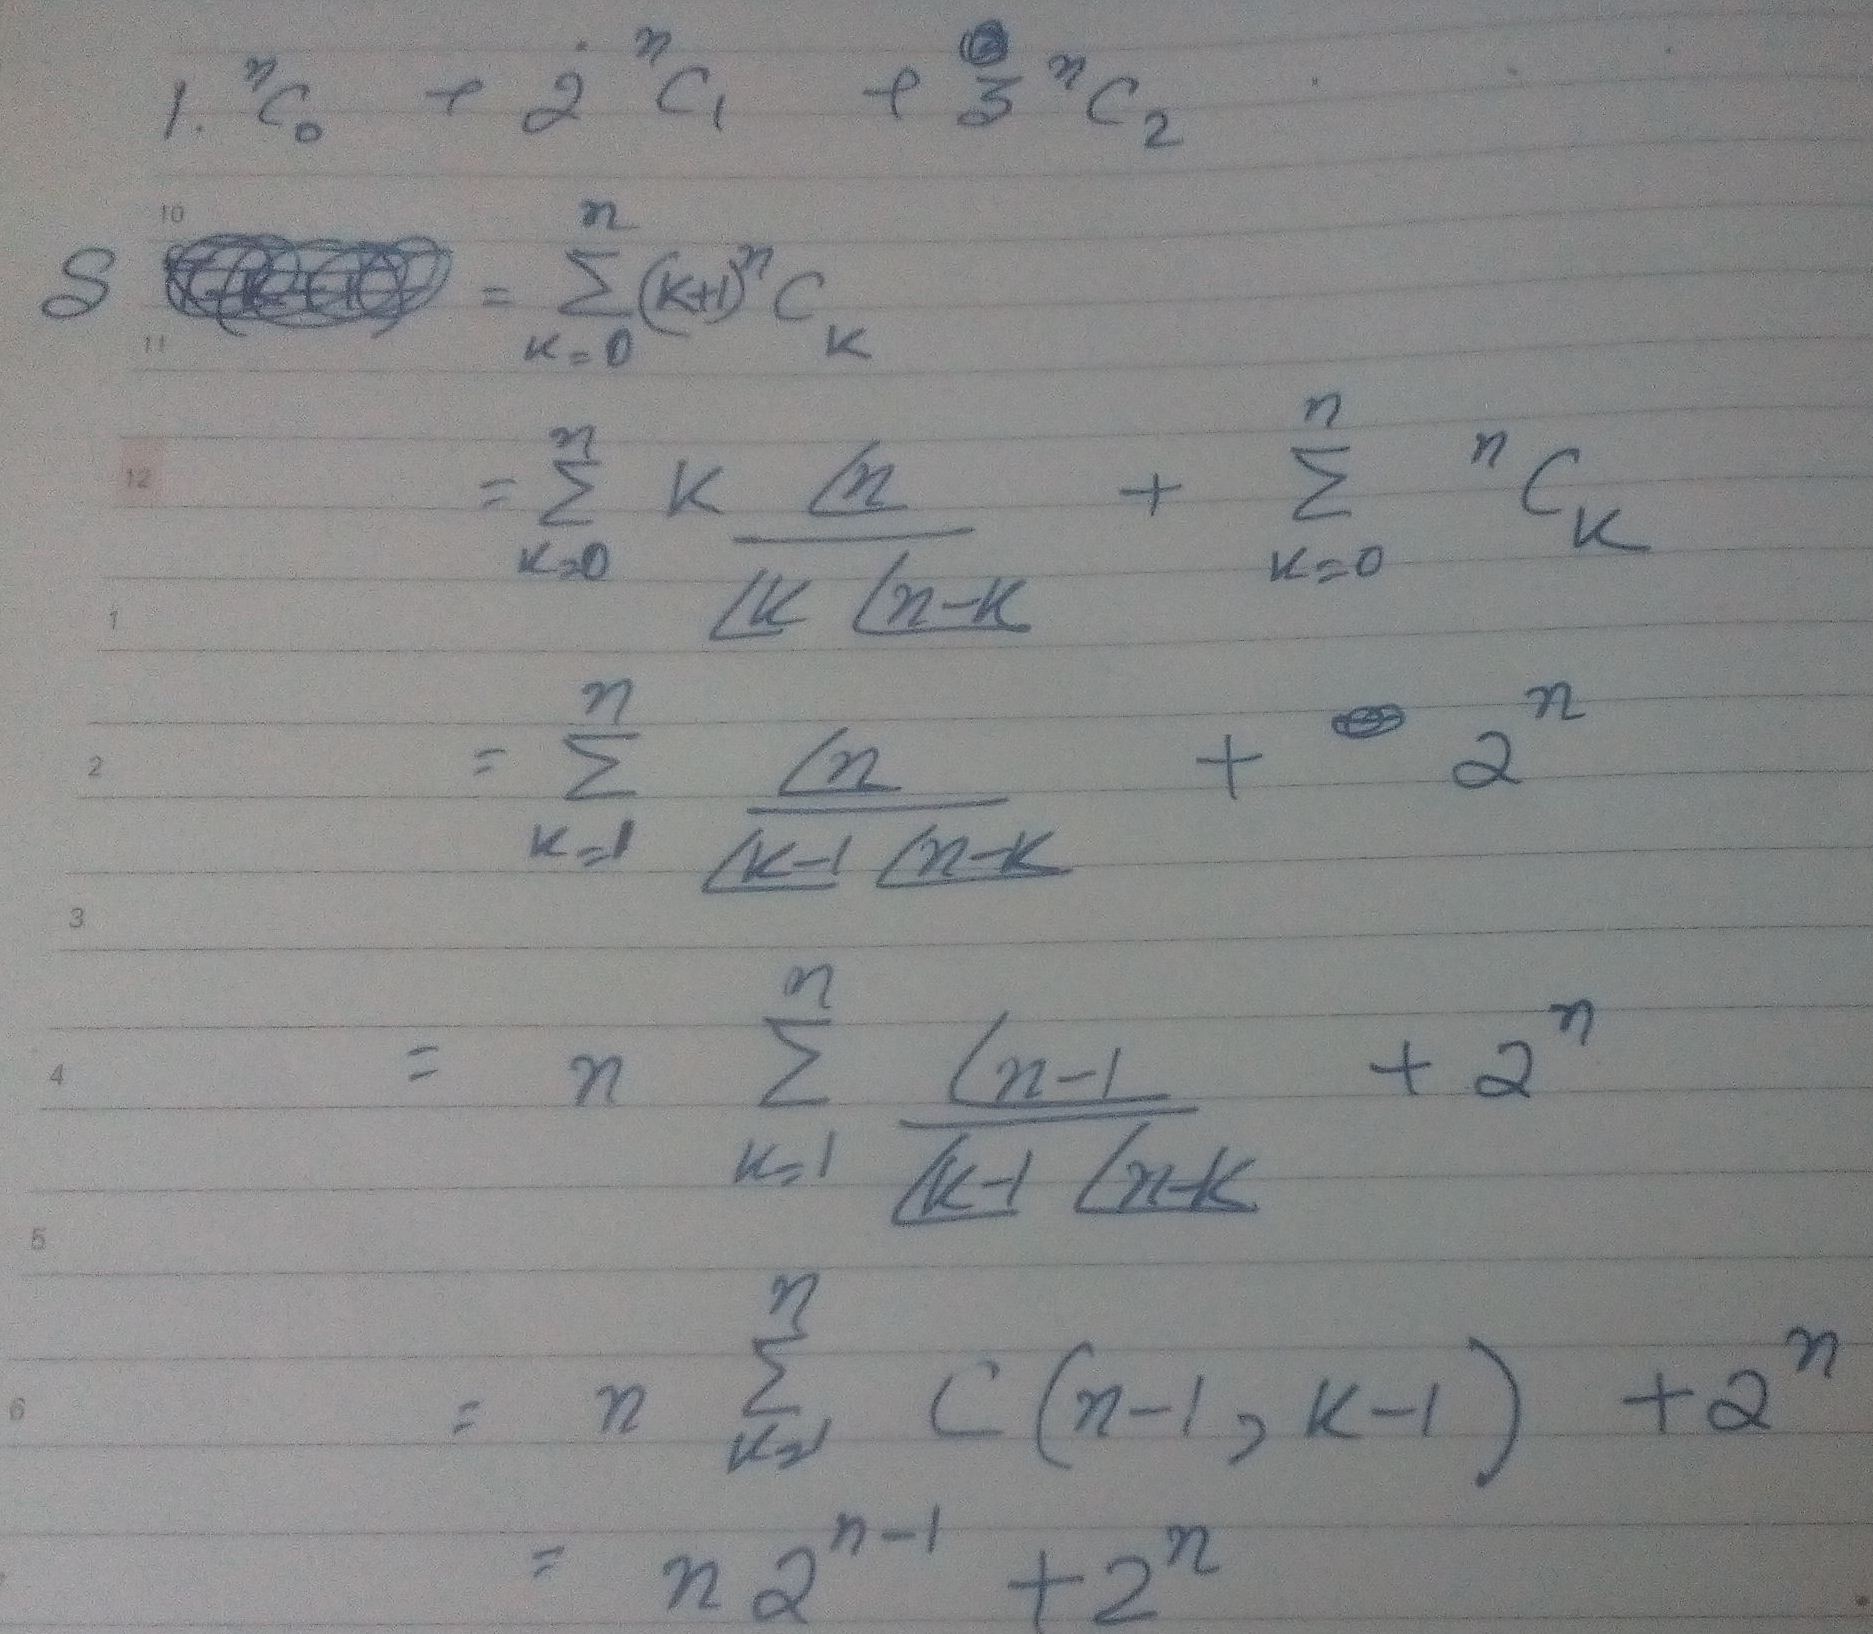 1. ⁿC₀ + 2 ⁿC₁ + 3 ⁿC₂
10
S = ∑_{k=0}^{n} (k+1) ⁿC_k
11
12
= ∑_{k=0}^{n} k ∠n / (∠k ∠n-k) + ∑_{k=0}^{n} ⁿC_k
1
2
= ∑_{k=1}^{n} ∠n / (∠k-1 ∠n-k) + 2ⁿ
3
4
= n ∑_{k=1}^{n} ∠n-1 / (∠k-1 ∠n-k) + 2ⁿ
5
6
= n ∑_{k=1}^{n} C(n-1, k-1) + 2ⁿ
= n 2ⁿ⁻¹ + 2ⁿ